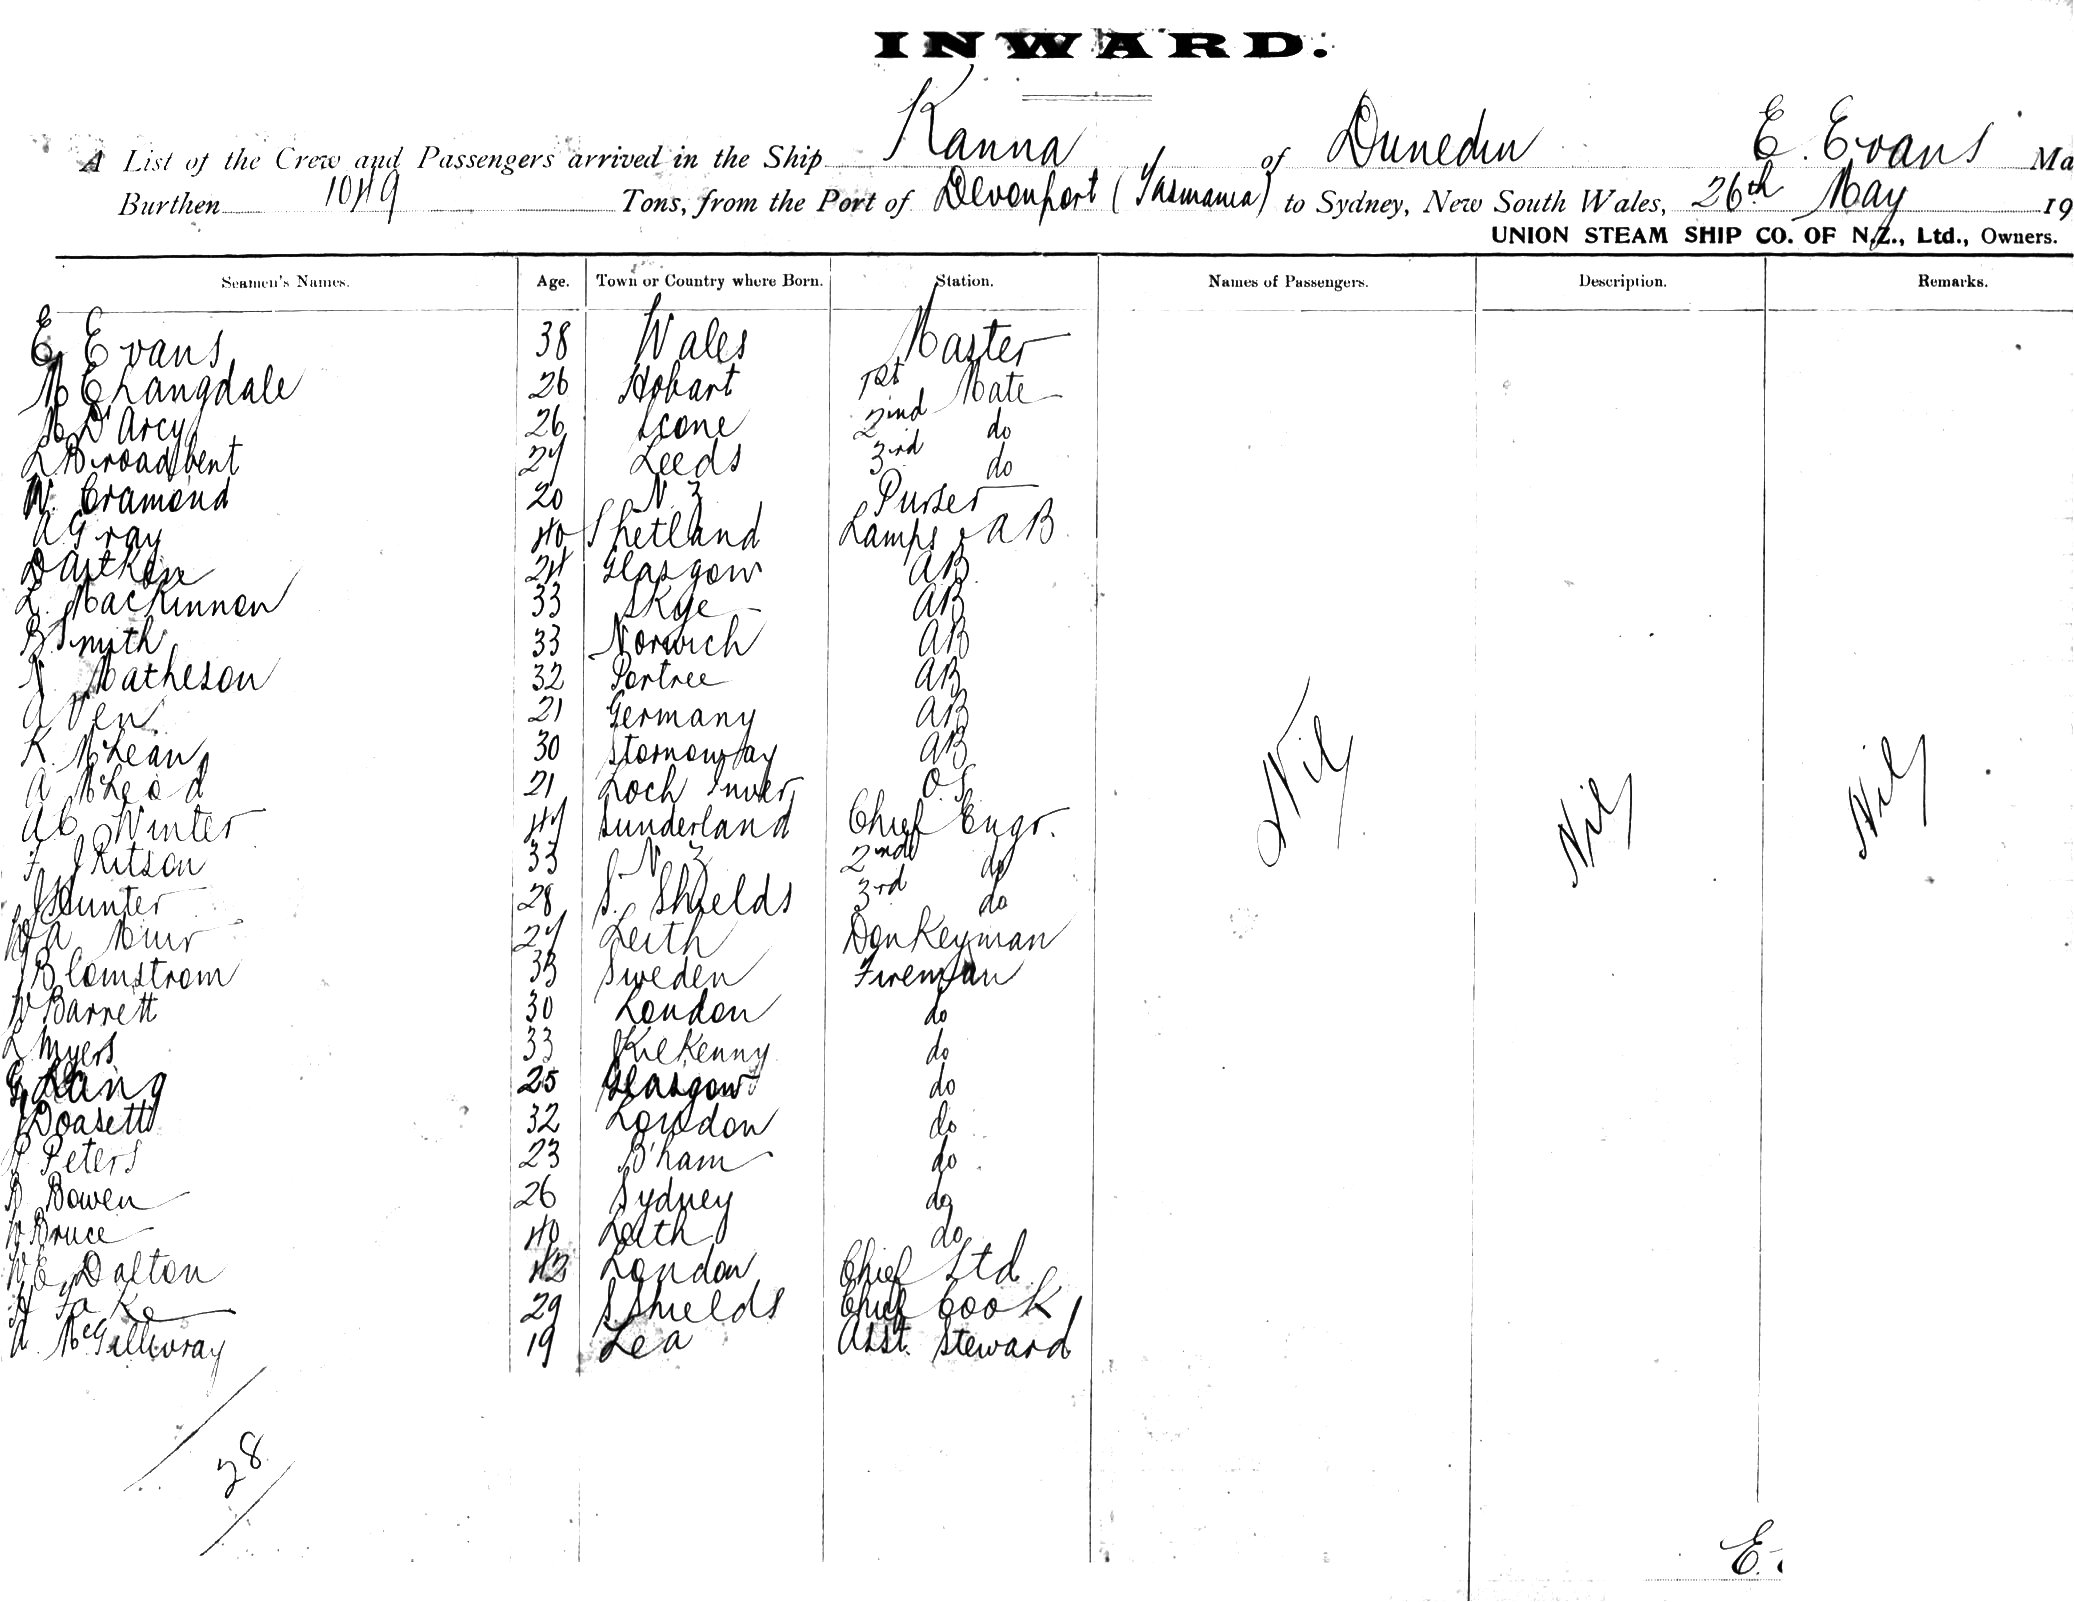 INWARD.
A List of the Crew and Passengers arrived in the Ship Kanna of Dunedin E. Evans Ma
Burthen 1049 Tons, from the Port of Devonport (Tasmania) to Sydney, New South Wales, 26th May 19
UNION STEAM SHIP CO. OF N.Z., Ltd., Owners.
Seamen's Names. Age. Town or Country where Born. Station. Names of Passengers. Description. Remarks.
E Evans 38 Wales Master
M E Langdale 26 Hobart 1st Mate
M D'Arcy 26 Scone 2nd do
L Broadbent 27 Leeds 3rd do
W. Cramond 20 N.Z Purser
A Gray 40 Shetland Lamps & AB
D Aitken 24 Glasgow AB
L. MacKinnon 33 Skye AB
B Smith 33 Norwich AB
N. Matheson 32 Portree AB
A Ven 21 Germany AB
K. McLean 30 Stornoway AB
A McLeod 21 Loch Inver O.S
A C Winter 47 Sunderland Chief Engr.
F J Ritson 33 N.Z 2nd do
J Hunter 28 S. Shields 3rd do
W A Muir 27 Leith Donkeyman
J Blomstrom 33 Sweden Fireman
W Barrett 30 London do
L Myers 33 Kilkenny do
G Lang 25 Glasgow do
J Doasett 32 London do
Peters 23 B'ham do
B Bowen 26 Sydney do
W Bruce 40 Leith do
W C Dalton 42 London Chief Std
H Jake 29 S Shields Chief Cook
A. McGillivray 19 Sea Asst. Steward
Nil Nil Nil
28
E.